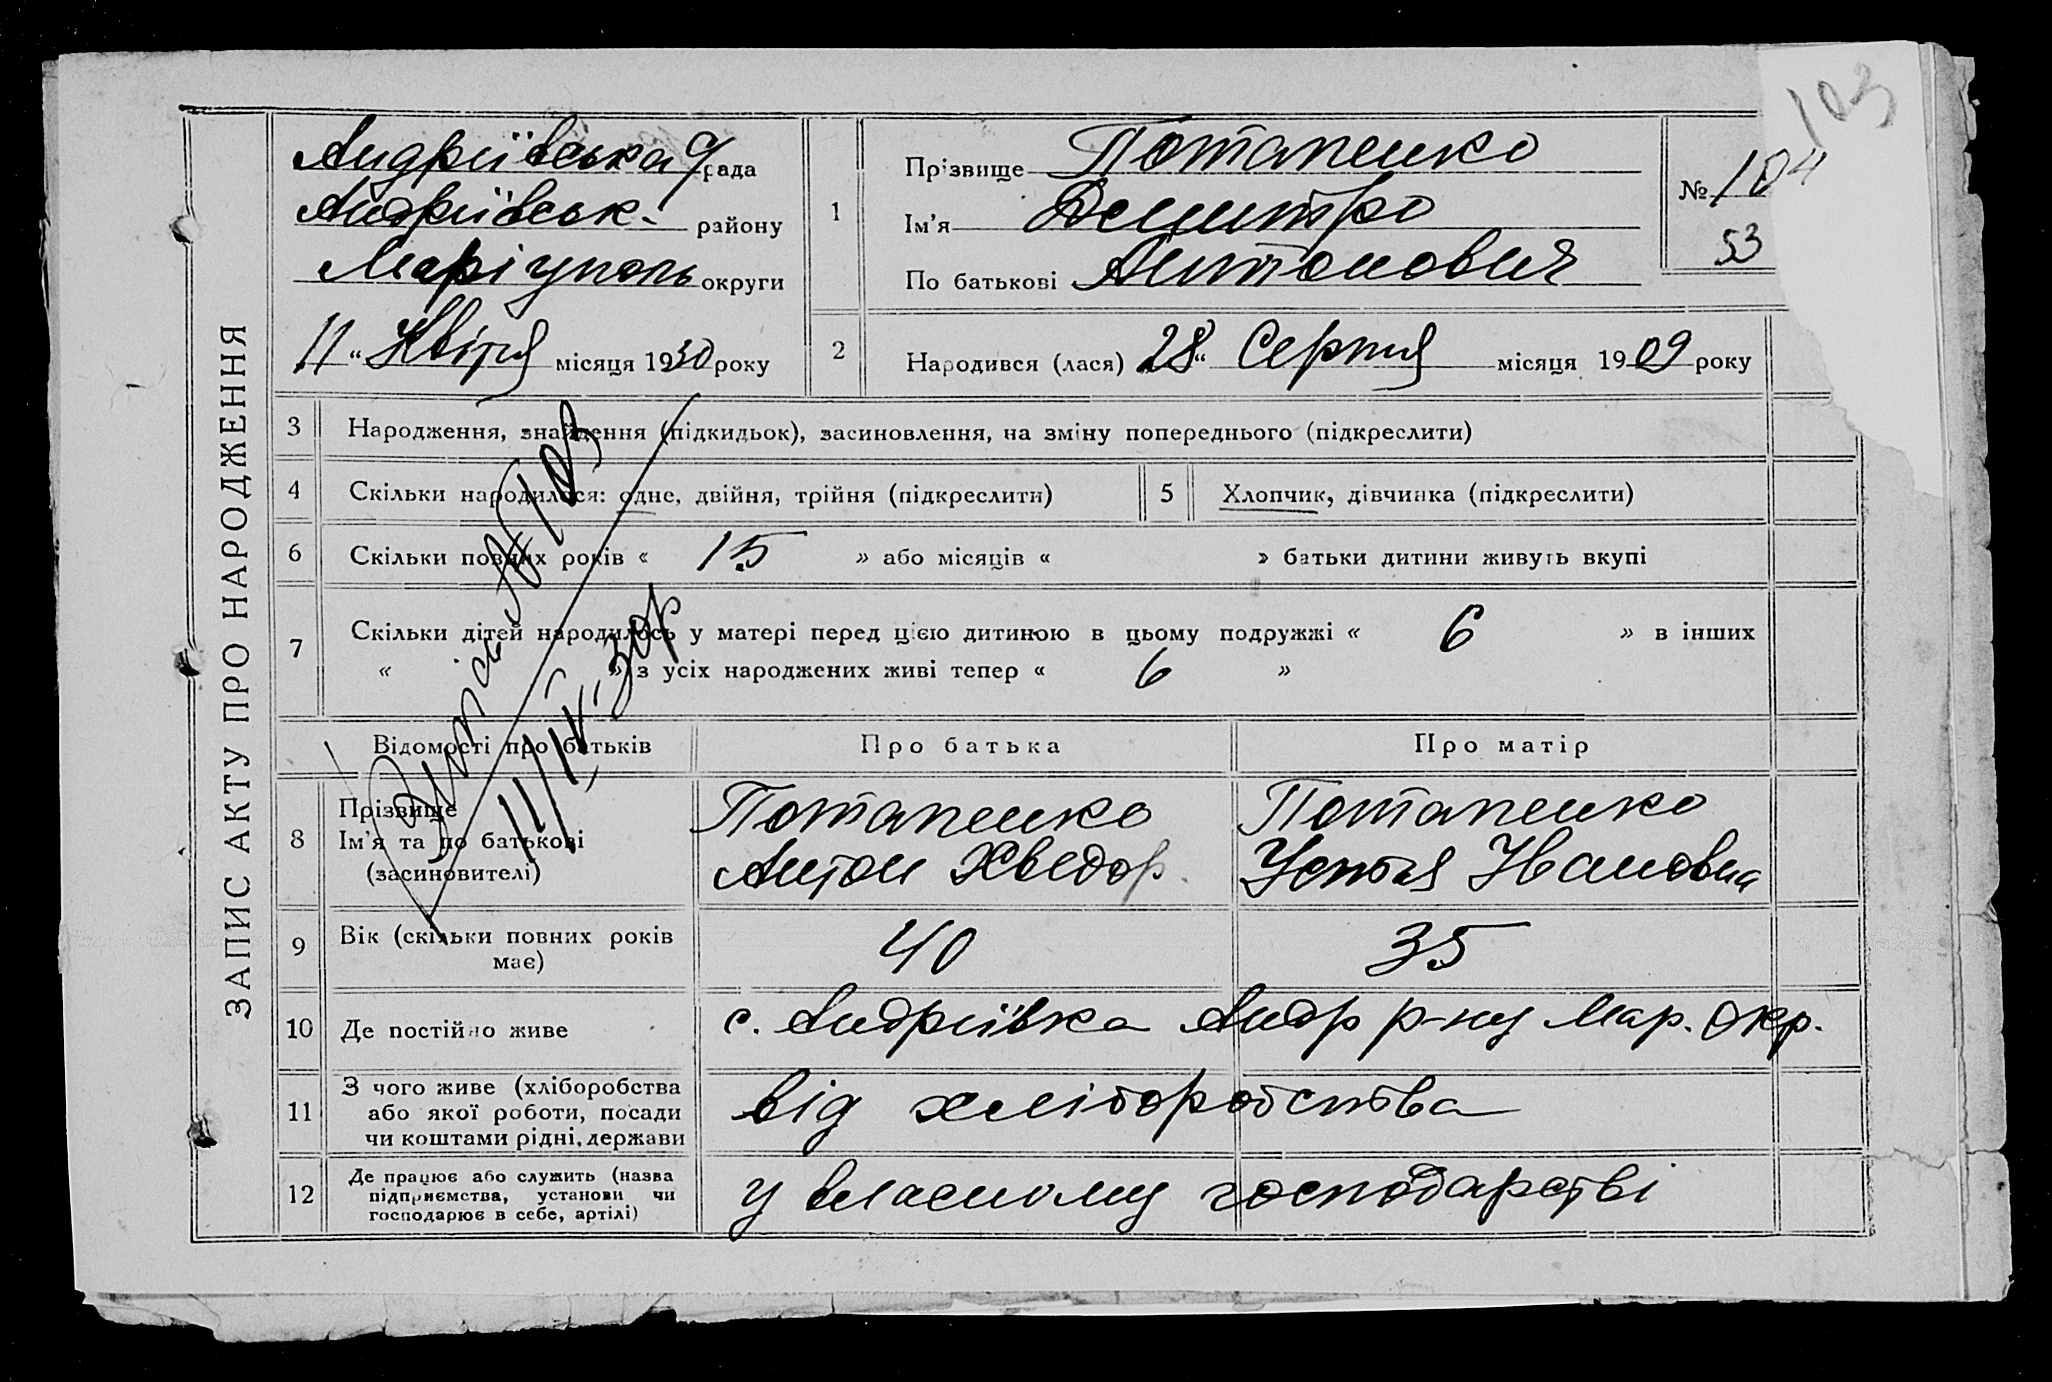 ЗАПИС АКТУ ПРО НАРОДЖЕННЯ
Андріївська с/рада
Андріївськ. району
Маріуполь округи
11 „ Квітня місяця 1930 року
1
Прізвище Потапенко
Ім'я Демитро
По батькові Антонович
№ 104
53
103
2
Народився (лася) 28 „ Серпня місяця 1909 року
3 Народження, знайдення (підкидьок), засиновлення, на зміну попереднього (підкреслити)
4 Скільки народилося: одне, двійня, трійня (підкреслити)
5 Хлопчик, дівчинка (підкреслити)
6 Скільки повних років « 15 » або місяців « » батьки дитини живуть вкупі
7 Скільки дітей народилось у матері перед цією дитиною в цьому подружжі « 6 » в інших
« » з усіх народжених живі тепер « 6 »
№ 103
11/IV-30р
Відомості про батьків
Про батька
Про матір
8 Прізвище
Ім'я та по батькові
(засиновителі)
Потапенко
Антон Хведор.
Потапенко
Устья Ивановна
9 Вік (скільки повних років
має)
40
35
10 Де постійно живе
с. Андріївка Андр р-ну Мар. Окр.
11 З чого живе (хліборобства
або якої роботи, посади
чи коштами рідні, держави
від хліборобства
12 Де працює або служить (назва
підприємства, установи чи
господарює в себе, артілі)
у власному господарстві